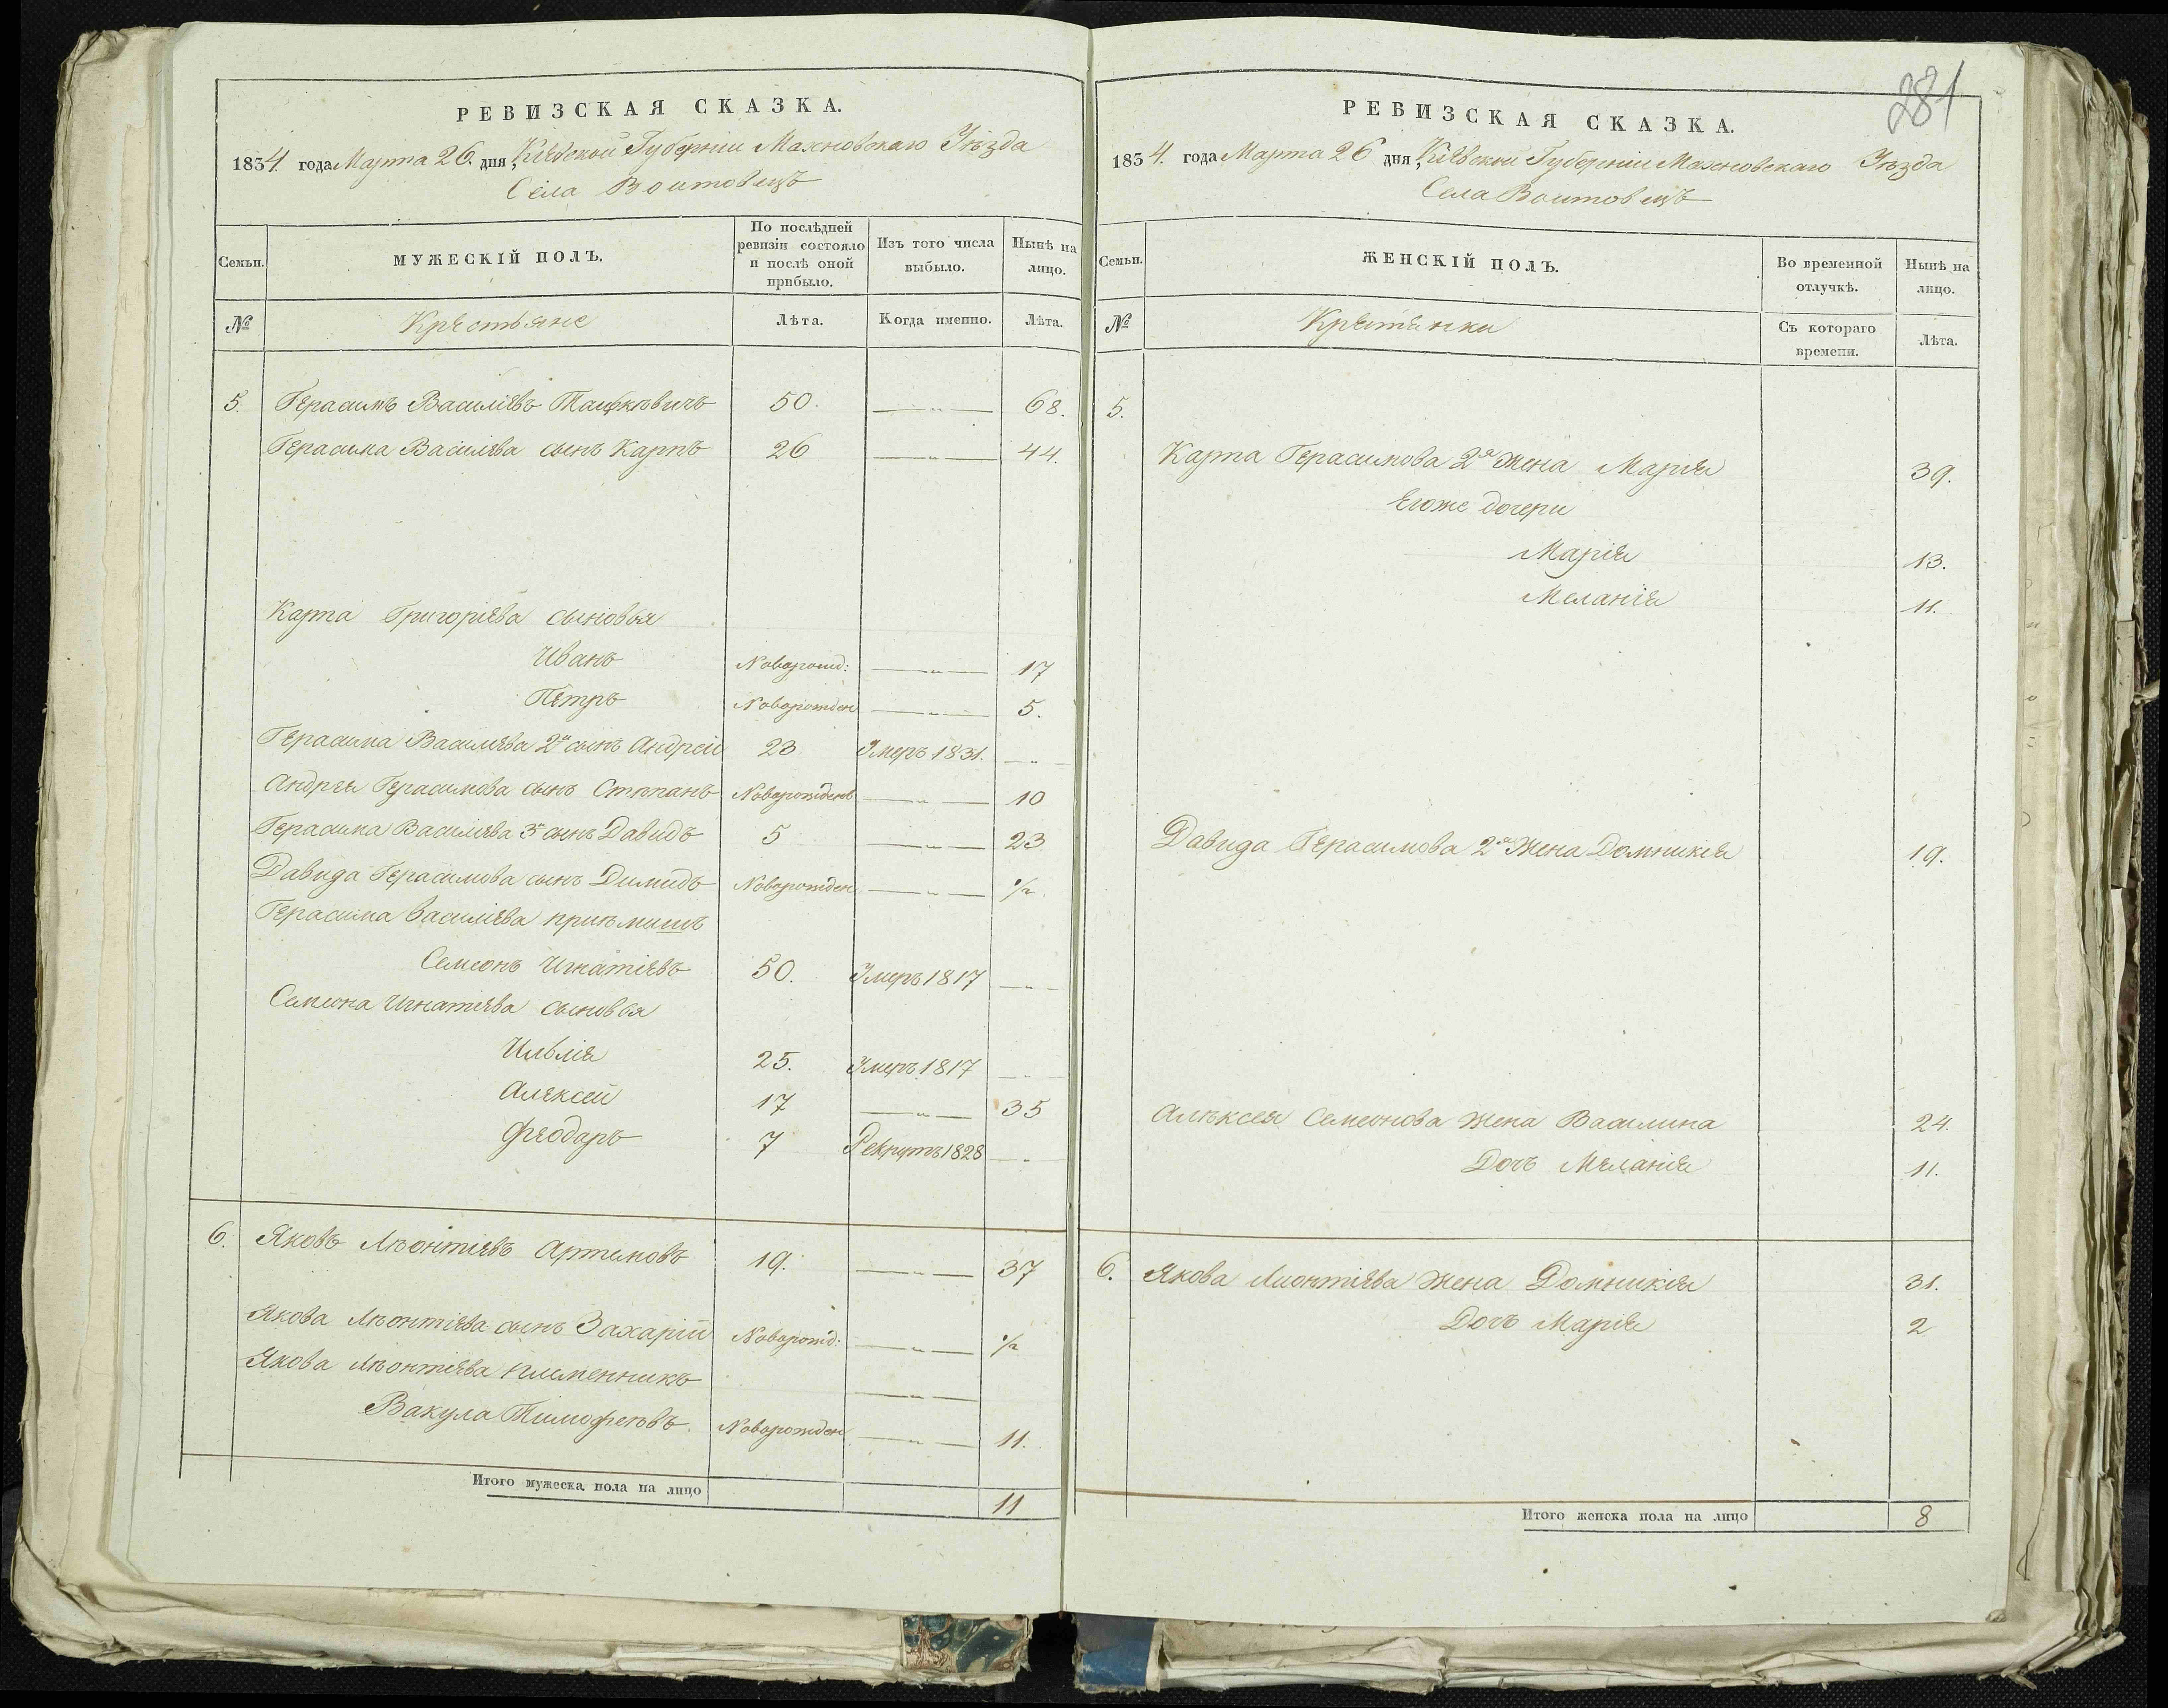 РЕВИЗСКАЯ СКАЗКА.
1834. года Марта 26. дня, Кіевской Губерніи Махновскаго Уѣзда
Села Воитовецъ
Семьи.
МУЖЕСКІЙ ПОЛЪ.
По послѣдней
ревизіи состояло
и послѣ оной
прибыло.
Изъ того числа
выбыло.
Нынѣ на
лицо.
№
Крестьяне
Лѣта.
Когда именно.
Лѣта.
5. Герасимъ Василіевъ 50. —„— 68.
Герасима Василіева сынъ Карпъ 26 —„— 44.
Карпа Григоріева сыновья
Иванъ Новорожд: —„— 17
Петръ Новорожден —„— 5.
Герасима Василіева 2й сынъ Андрей 23 Умеръ 1831. —„—
Андрея Герасимова сынъ Степанъ Новорожденъ —„— 10
Герасима Василіева 3й сынъ Давидъ 5 —„— 23
Давида Герасимова сынъ Димидъ Новорожден —„— 1/2
Герасима Василіева пріемишъ
Семионъ Игнатіевъ 50. Умеръ 1817 —„—
Семиона Игнатіева сыновья
Ильлія 25. Умеръ 1817 —„—
Алексей 17 —„— 35
Феодаръ 7 Рекрутъ 1828 —„—
6. Яковъ Лѣонтіевъ Артемовъ 19. —„— 37
Якова Лѣонтіева сынъ Захарій Новорожд: —„— 1/2
Якова Лѣонтіева племенникъ —„—
Вакула Тимофеевъ Новорожден —„— 11.
Итого мужеска пола на лицо 11
281
РЕВИЗСКАЯ СКАЗКА.
1834. года Марта 26 дня, Кіевской Губерніи Махновскаго Уѣзда
Села Воитовецъ
Семьи.
ЖЕНСКІЙ ПОЛЪ.
Во временной
отлучкѣ.
Нынѣ на
лицо.
№
Крестянки
Съ котораго
времени.
Лѣта.
5.
Карпа Герасимова 2а жена Марія 39.
Егоже дочери
Марія 13.
Меланія 11.
Давида Герасимова 2а жена Домникія 19.
Алѣксея Семионова жена Василина 24.
Дочъ Меланія 11.
6. Якова Лионтіева жена Домникія 31.
Дочъ Марія 2
Итого женска пола на лицо 8